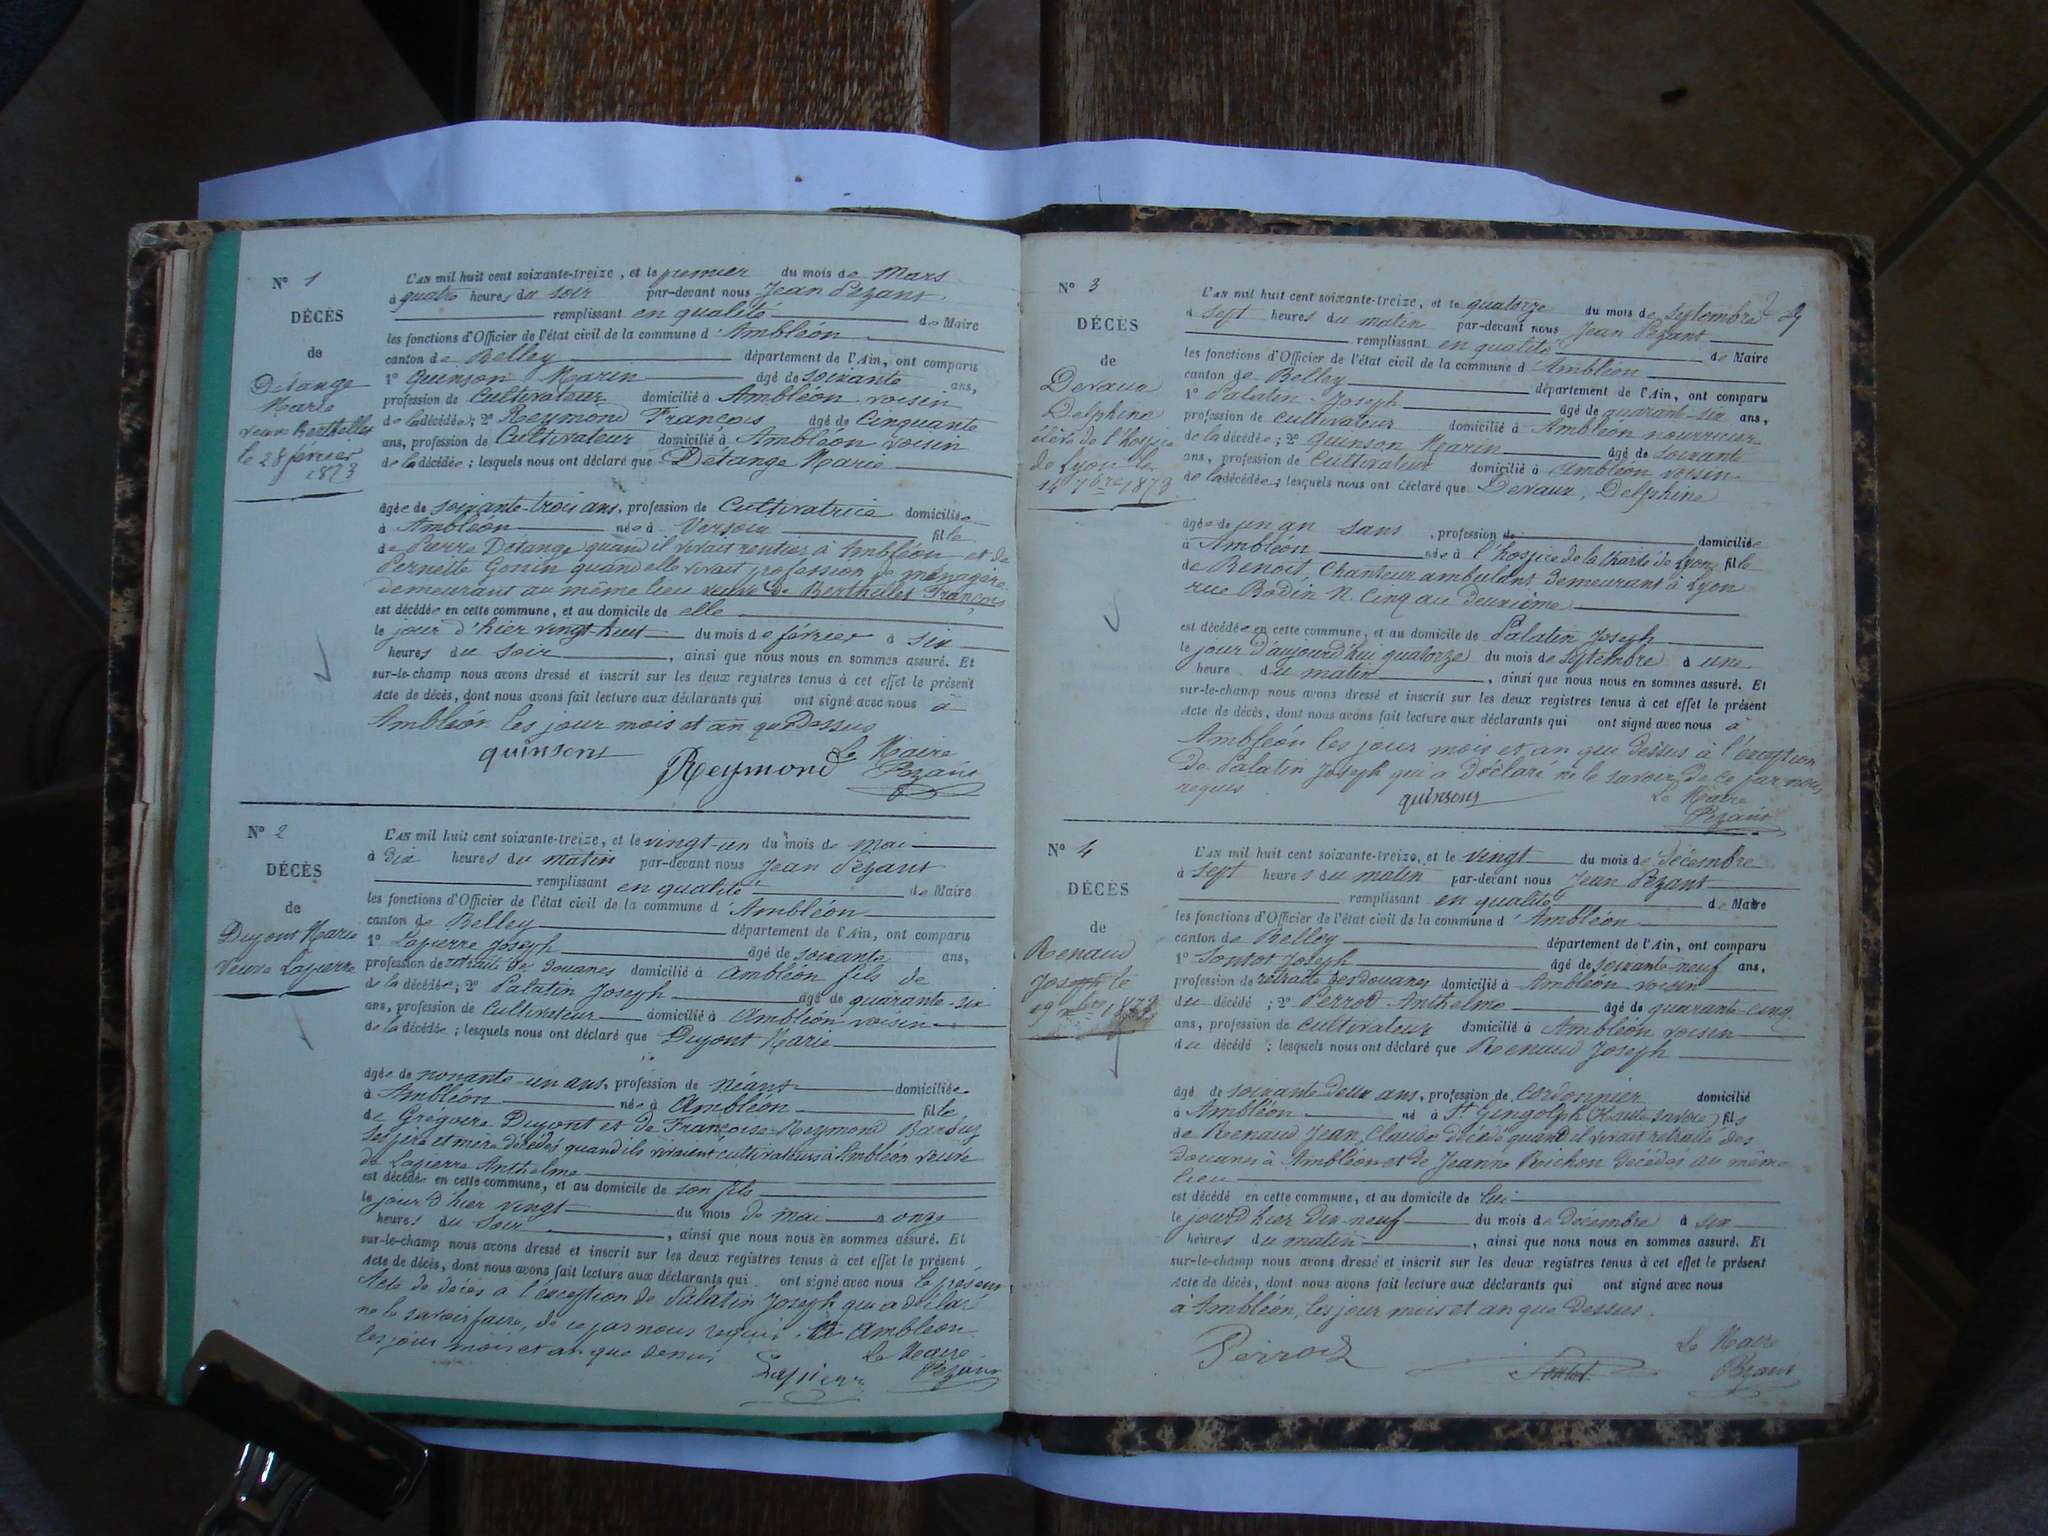 N° 1
DÉCÈS
de
Détange
Marie
veuve Berthellet
le 28 février
1873
L'AN mil huit cent soixante-treize, et le premier du mois de Mars
à quatre heures du soir par-devant nous Jean Pezant
remplissant en qualité de Maire
les fonctions d'Officier de l'état civil de la commune d'Ambléon
canton de Belley département de l'Ain, ont comparu
1° Quinson Marin âgé de soixante ans,
profession de Cultivateur domicilié à Ambléon voisin
de la décédée; 2° Reymond François agé de Cinquante
ans, profession de Cultivateur domicilié à Ambléon voisin
de la décédée; lesquels nous ont déclaré que Détange Marie
âgée de soixante-trois ans, profession de Cultivatrice domiciliée
à Ambléon née à fille
de Pierre Détange quand il vivait rentier à Ambléon et de
Pernette Gonin quand elle vivait profession de ménagère
demeurant au même lieu veuve de Berthellet François
est décédée en cette commune, et au domicile de elle
le jour d'hier vingt-huit du mois de février à six
heures du soir, ainsi que nous nous en sommes assuré. Et
sur-le-champ nous avons dressé et inscrit sur les deux registres tenus à cet effet le présent
Acte de décès, dont nous avons fait lecture aux déclarants qui ont signé avec nous à
Ambléon les jour mois et an que Dessus
quinsons Reymond Le Maire
Pezant
N° 2
DÉCÈS
de
Dupont Marie
Veuve Lapierre
L'AN mil huit cent soixante-treize, et le vingt-un du mois de Mai
à dix heures du matin par-devant nous Jean Pezant
remplissant en qualité de Maire
les fonctions d'Officier de l'état civil de la commune d'Ambléon
canton de Belley département de l'Ain, ont comparu
1° Lapierre Joseph âgé de soixante ans,
profession de retraité des Douanes domicilié à Ambléon fils de
de la décédée; 2° Palatin Joseph âgé de quarante-six
ans, profession de Cultivateur domicilié à Ambléon voisin
de la décédée; lesquels nous ont déclaré que Dupont Marie
âgée de nonante-un ans, profession de Néant domiciliée
à Ambléon née à Ambléon fille
de Grégoire Dupont et de Françoise Reymond
ses père et mère décédés quand ils vivaient cultivateurs à Ambléon veuve
de Lapierre Anthelme
est décédée en cette commune, et au domicile de son fils
le jour d'hier vingt du mois de mai à onze
heures du soir, ainsi que nous nous en sommes assuré. Et
sur-le-champ nous avons dressé et inscrit sur les deux registres tenus à cet effet le présent
Acte de décès, dont nous avons fait lecture aux déclarants qui ont signé avec nous le présent
Acte de décès à l'exception de Palatin Joseph qui a déclaré
ne le savoir faire, de ce par nous requis. à Ambléon
les jour mois et an que dessus
Le Maire
Lapierre Pezant
N° 3
DÉCÈS
de
Devaux
Delphine
élève de l'hospice
de Lyon le
14 7bre 1873
L'AN mil huit cent soixante-treize, et le quatorze du mois de septembre
à sept heures du matin par-devant nous Jean Pezant
remplissant en qualité de Maire
les fonctions d'Officier de l'état civil de la commune d'Ambléon
canton de Belley département de l'Ain, ont comparu
1° Palatin Joseph âgé de quarante-six ans,
profession de cultivateur domicilié à Ambléon nourricier
de la décédée; 2° Quinson Marin âgé de soixante
ans, profession de Cultivateur domicilié à Ambléon voisin
de la décédée; lesquels nous ont déclaré que Devaux, Delphine
âgée de un an sans, profession de domiciliée
à Ambléon née à l'hospice de la Charité de Lyon fille
de Benoit, Chanteur ambulant demeurant à Lyon
rue Bodin N. Cinq au deuxième
est décédée en cette commune, et au domicile de Palatin Joseph
le jour d'aujourd'hui quatorze du mois de septembre à une
heure du matin, ainsi que nous nous en sommes assuré. Et
sur-le-champ nous avons dressé et inscrit sur les deux registres tenus à cet effet le présent
Acte de décès, dont nous avons fait lecture aux déclarants qui ont signé avec nous à
Ambléon les jour mois et an que dessus à l'exception
de Palatin Joseph qui a déclaré ne le savoir de ce par nous
requis quinsons Le Maire
Pezant
N° 4
DÉCÈS
de
Renaud
Joseph le
L'AN mil huit cent soixante-treize, et le vingt du mois de décembre
à sept heures du matin par-devant nous Jean Pezant
remplissant en qualité de Maire
les fonctions d'Officier de l'état civil de la commune d'Ambléon
canton de Belley département de l'Ain, ont comparu
1° Joseph âgé de soixante-neuf ans,
profession de retraité des douanes domicilié à Ambléon voisin
du décédé; 2° Perrod Anthelme âgé de quarante-cinq
ans, profession de cultivateur domicilié à Ambléon voisin
du décédé; lesquels nous ont déclaré que Renaud Joseph
âgé de soixante deux ans, profession de Cordonnier domicilié
à Ambléon né à St Gingolph (Haute Savoie) fils
de Renaud Jean Claude décédé quand il vivait retraité des
douanes à Ambléon et de Jeanne Roichon décédés au même
lieu
est décédé en cette commune, et au domicile de lui
le jourd'hier dix-neuf du mois de décembre à six
heures du matin, ainsi que nous nous en sommes assuré. Et
sur-le-champ nous avons dressé et inscrit sur les deux registres tenus à cet effet le présent
Acte de décès, dont nous avons fait lecture aux déclarants qui ont signé avec nous
à Ambléon, les jour mois et an que dessus.
Le Maire
Perrod Pezant